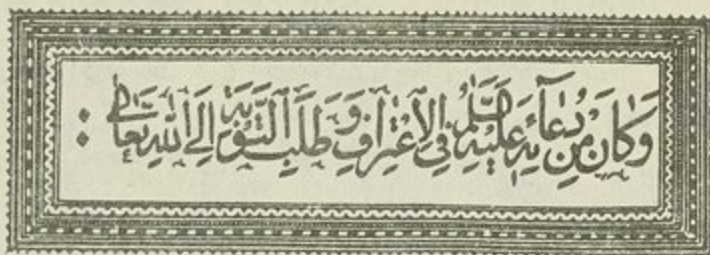 وَكَانَ مِنْ دُعَائِهِ عَلَيْهِ السَّلَامُ فِي الِاعْتِرَافِ وَطَلَبِ التَّوْبَةِ إِلَى اللهِ تَعَالَى :